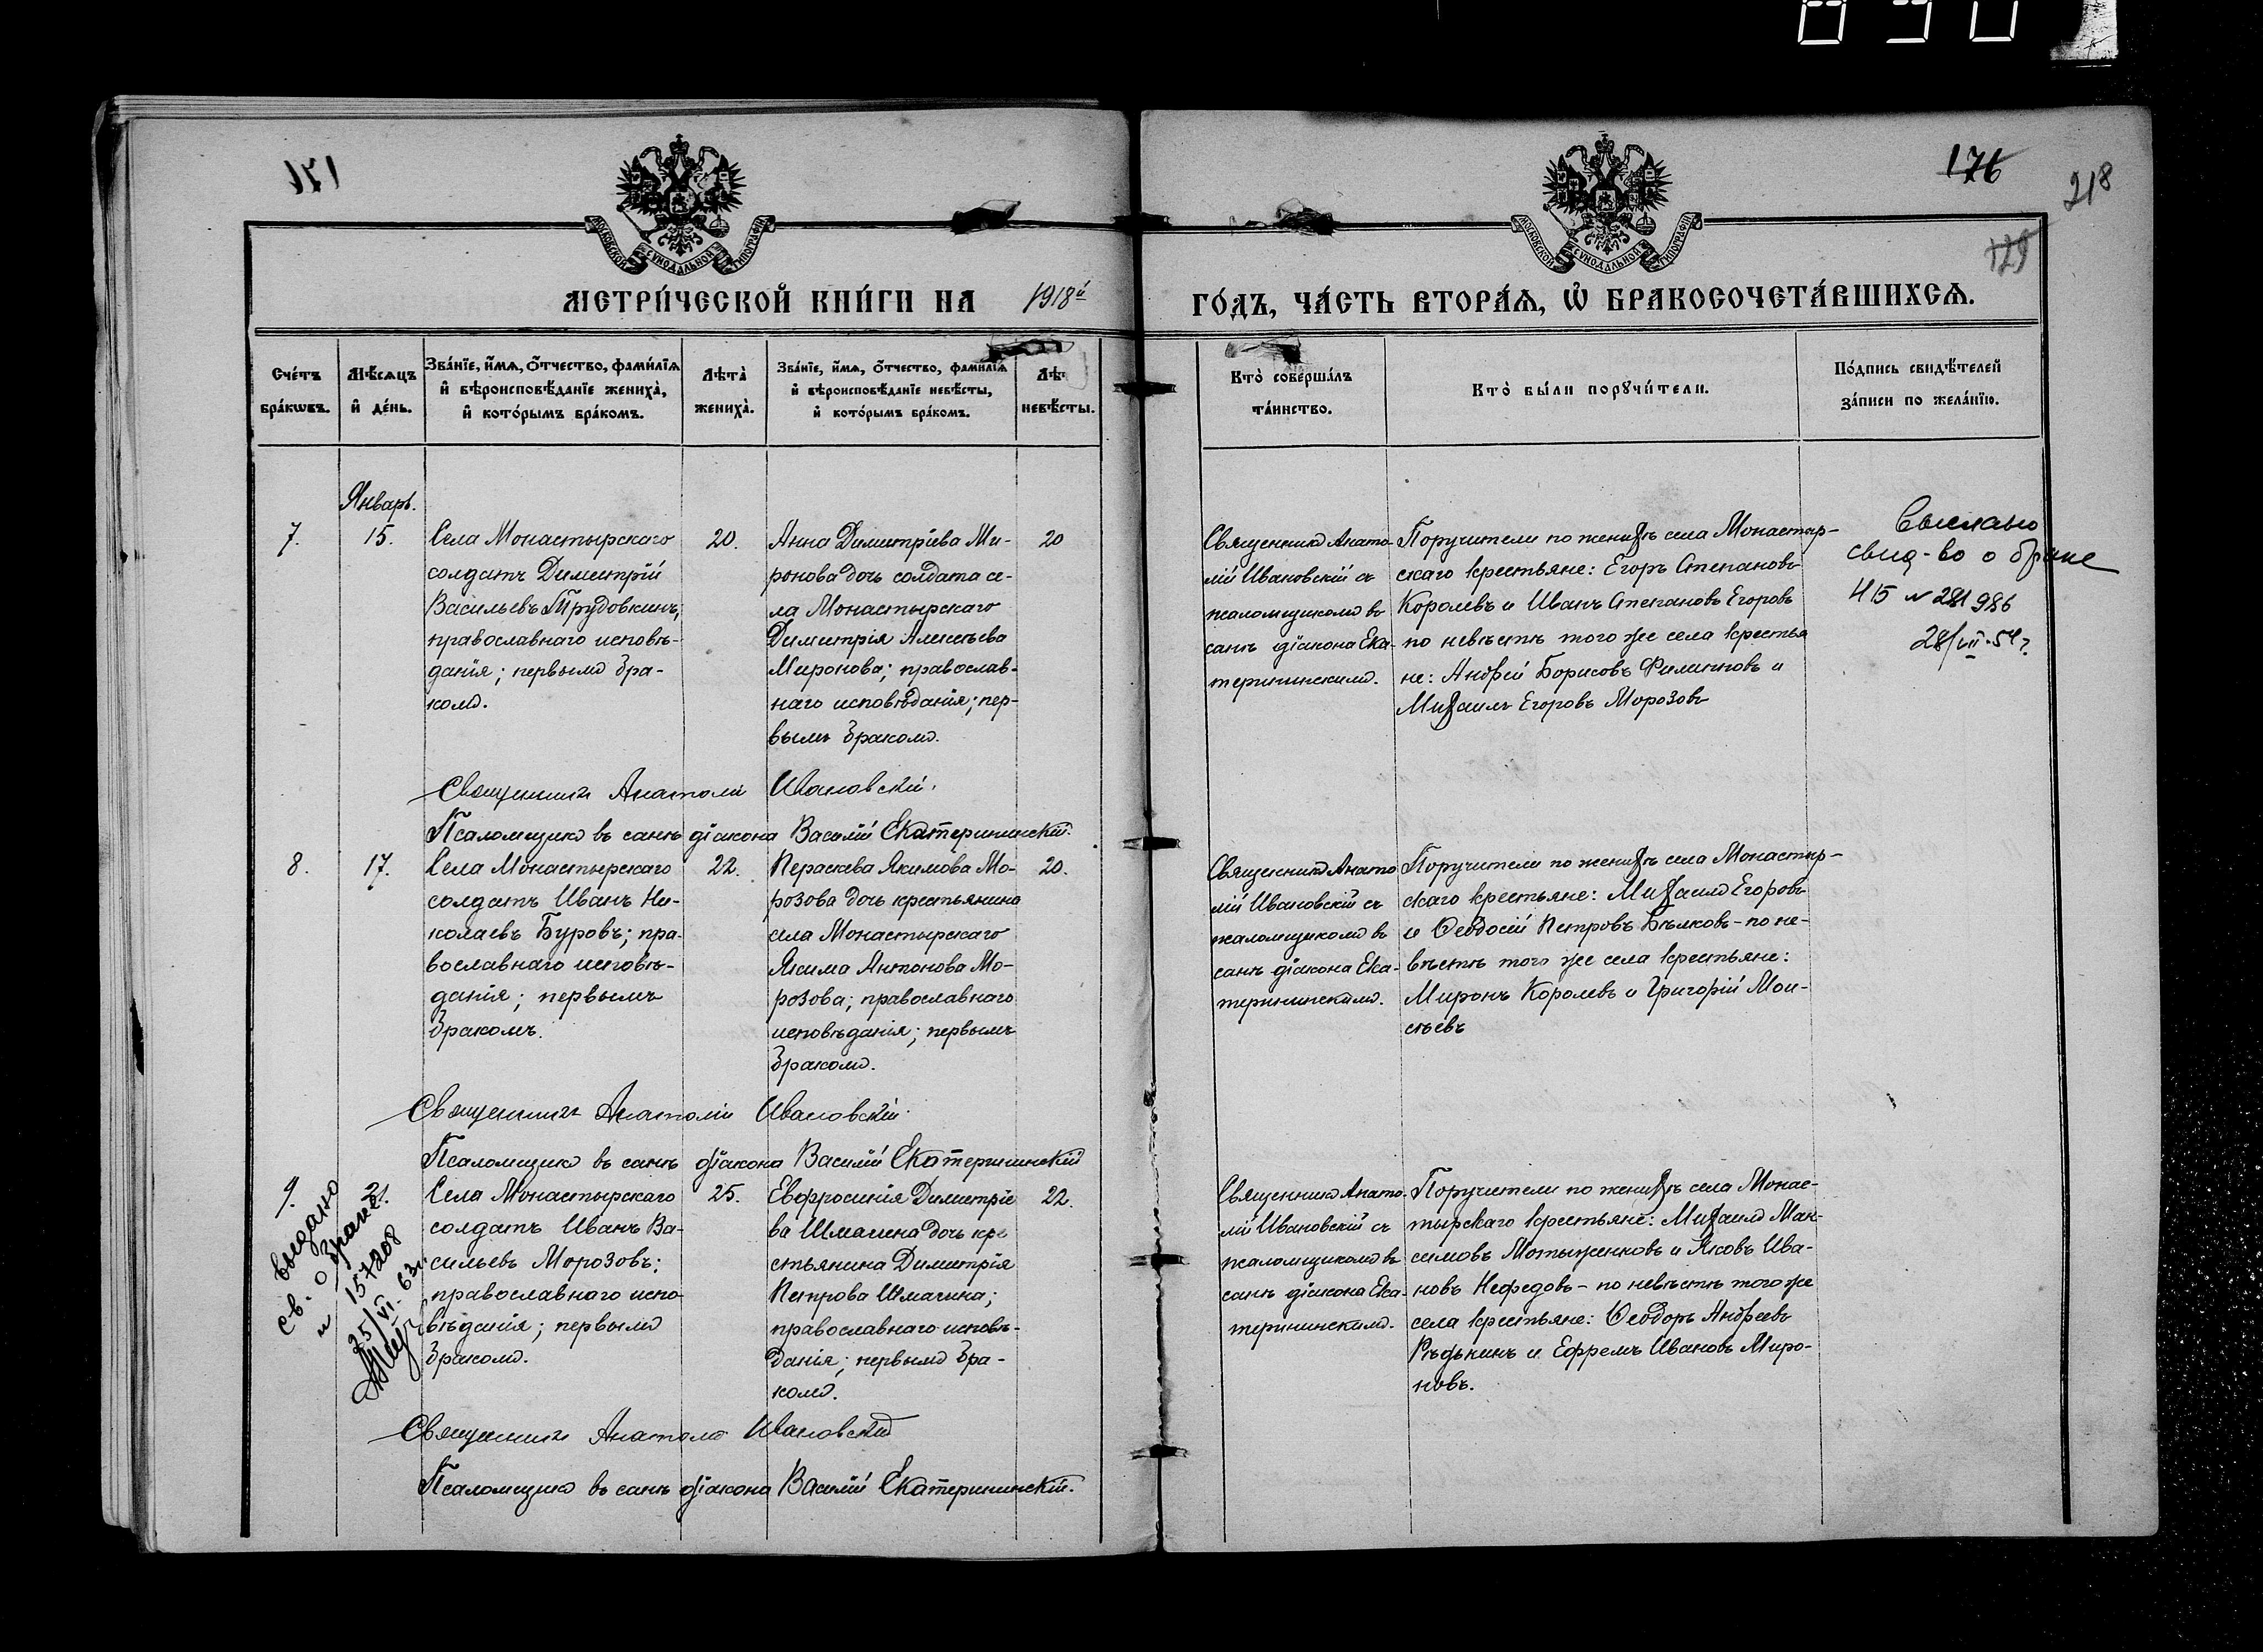 890
171
176
218
129
МОСКОВСКОЙ СУНОДАЛЬНОЙ ТИПОГРАФІИ
МОСКОВСКОЙ СУНОДАЛЬНОЙ ТИПОГРАФІИ
МЕТРИ́ЧЕСКОЙ КНИ́ГИ НА 1918й ГО́ДЪ, ЧА́СТЬ ВТОРА́Ѧ, Ѿ БРАКОСОЧЕТА́ВШИХСѦ.
Сче́тъ
бра́кѡвъ.
Мѣ́сѧцъ
и҆ де́нь.
Зва́нїе, и҆́мѧ, ѻ҆́тчество, фами́лїѧ
и҆ вѣроисповѣ́данїе жениха̀,
и҆ кото́рымъ бра́комъ.
Лѣта̀
жениха̀.
Зва́нїе, и҆́мѧ, ѻ҆́тчество, фами́лїѧ
и҆ вѣроисповѣ́данїе невѣ́сты,
и҆ кото́рымъ бра́комъ.
Лѣт
невѣ́сты.
Кто̀ соверша́лъ
та́инство.
Кто̀ бы́ли порꙋчи́тели.
По́дпись свидѣ́телей
за́писи по жела́нїю.
Январь.
7.
15.
Села Монастырскаго
солдатъ Димитрій
Васильевъ Трудовкинъ,
православнаго исповѣ-
данія; первымъ бра-
комъ.
20.
Анна Димитріева Ми-
ронова дочь солдата се-
ла Монастырскаго
Димитрія Алексѣева
Миронова; православ-
наго исповѣданія; пер-
вымъ бракомъ.
20
Священникъ Анато-
лій Ивановскій съ
псаломщикомъ въ
санѣ діакона Ека-
терининскимъ.
Поручители по женихѣ села Монастыр-
скаго крестьяне: Егоръ Степановъ
Королевъ и Иванъ Степановъ Егоровъ
по невѣстѣ того же села крестья
не: Андрей Борисовъ Филипповъ и
Михаилъ Егоровъ Морозовъ
Выслано
свид-во о браке
415 № 281986
28/VII-54г.
Священникъ Анатолій Ивановскій.
Псаломщикъ въ санѣ діакона Василій Екатерининскій.
8.
17.
Села Монастырскаго
солдатъ Иванъ Ни-
колаевъ Буровъ; пра-
вославнаго исповѣ-
данія; первымъ
бракомъ.
22.
Пераскева Якимова Мо-
розова дочь крестьянина
села Монастырскаго
Якима Антонова Мо-
розова; православнаго
исповѣданія; первымъ
бракомъ.
20.
Священникъ Анато
лій Ивановскій съ
псаломщикомъ въ
санѣ діакона Ека-
терининскимъ.
Поручители по женихѣ села Монастыр-
скаго крестьяне: Михаилъ Егоровъ
и Ѳеодосій Петровъ Бѣлковъ - по не-
вѣстѣ того же села крестьяне:
Миронъ Королевъ и Григорій Мои-
сѣевъ
Священникъ Анатолій Ивановскій.
Псаломщикъ въ санѣ діакона Василій Екатерининскій
9.
21.
Села Монастырскаго
солдатъ Иванъ Ва-
сильевъ Морозовъ;
православнаго испо-
вѣданія; первымъ
бракомъ.
25.
Евфросинія Димитріе
ва Шмагина дочь кре
стьянина Димитрія
Петрова Шмагина;
православнаго исповѣ-
данія; первымъ бра-
комъ.
22.
Священникъ Анато-
лій Ивановскій съ
псаломщикомъ въ
санѣ діакона Ека-
терининскимъ.
Поручители по женихѣ села Монас-
тырскаго крестьяне: Михаилъ Мак-
симовъ Мотыженковъ и Яковъ Ива-
новъ Нефедовъ - по невѣстѣ того же
села крестьяне: Ѳеодоръ Андреевъ
Рѣдькинъ и Ефремъ Ивановъ Миро-
новъ.
выдано
св. о браке
и 157208
25/VI-63г.
Священникъ Анатолій Ивановскій
Псаломщикъ въ санѣ діакона Василій Екатерининскій.